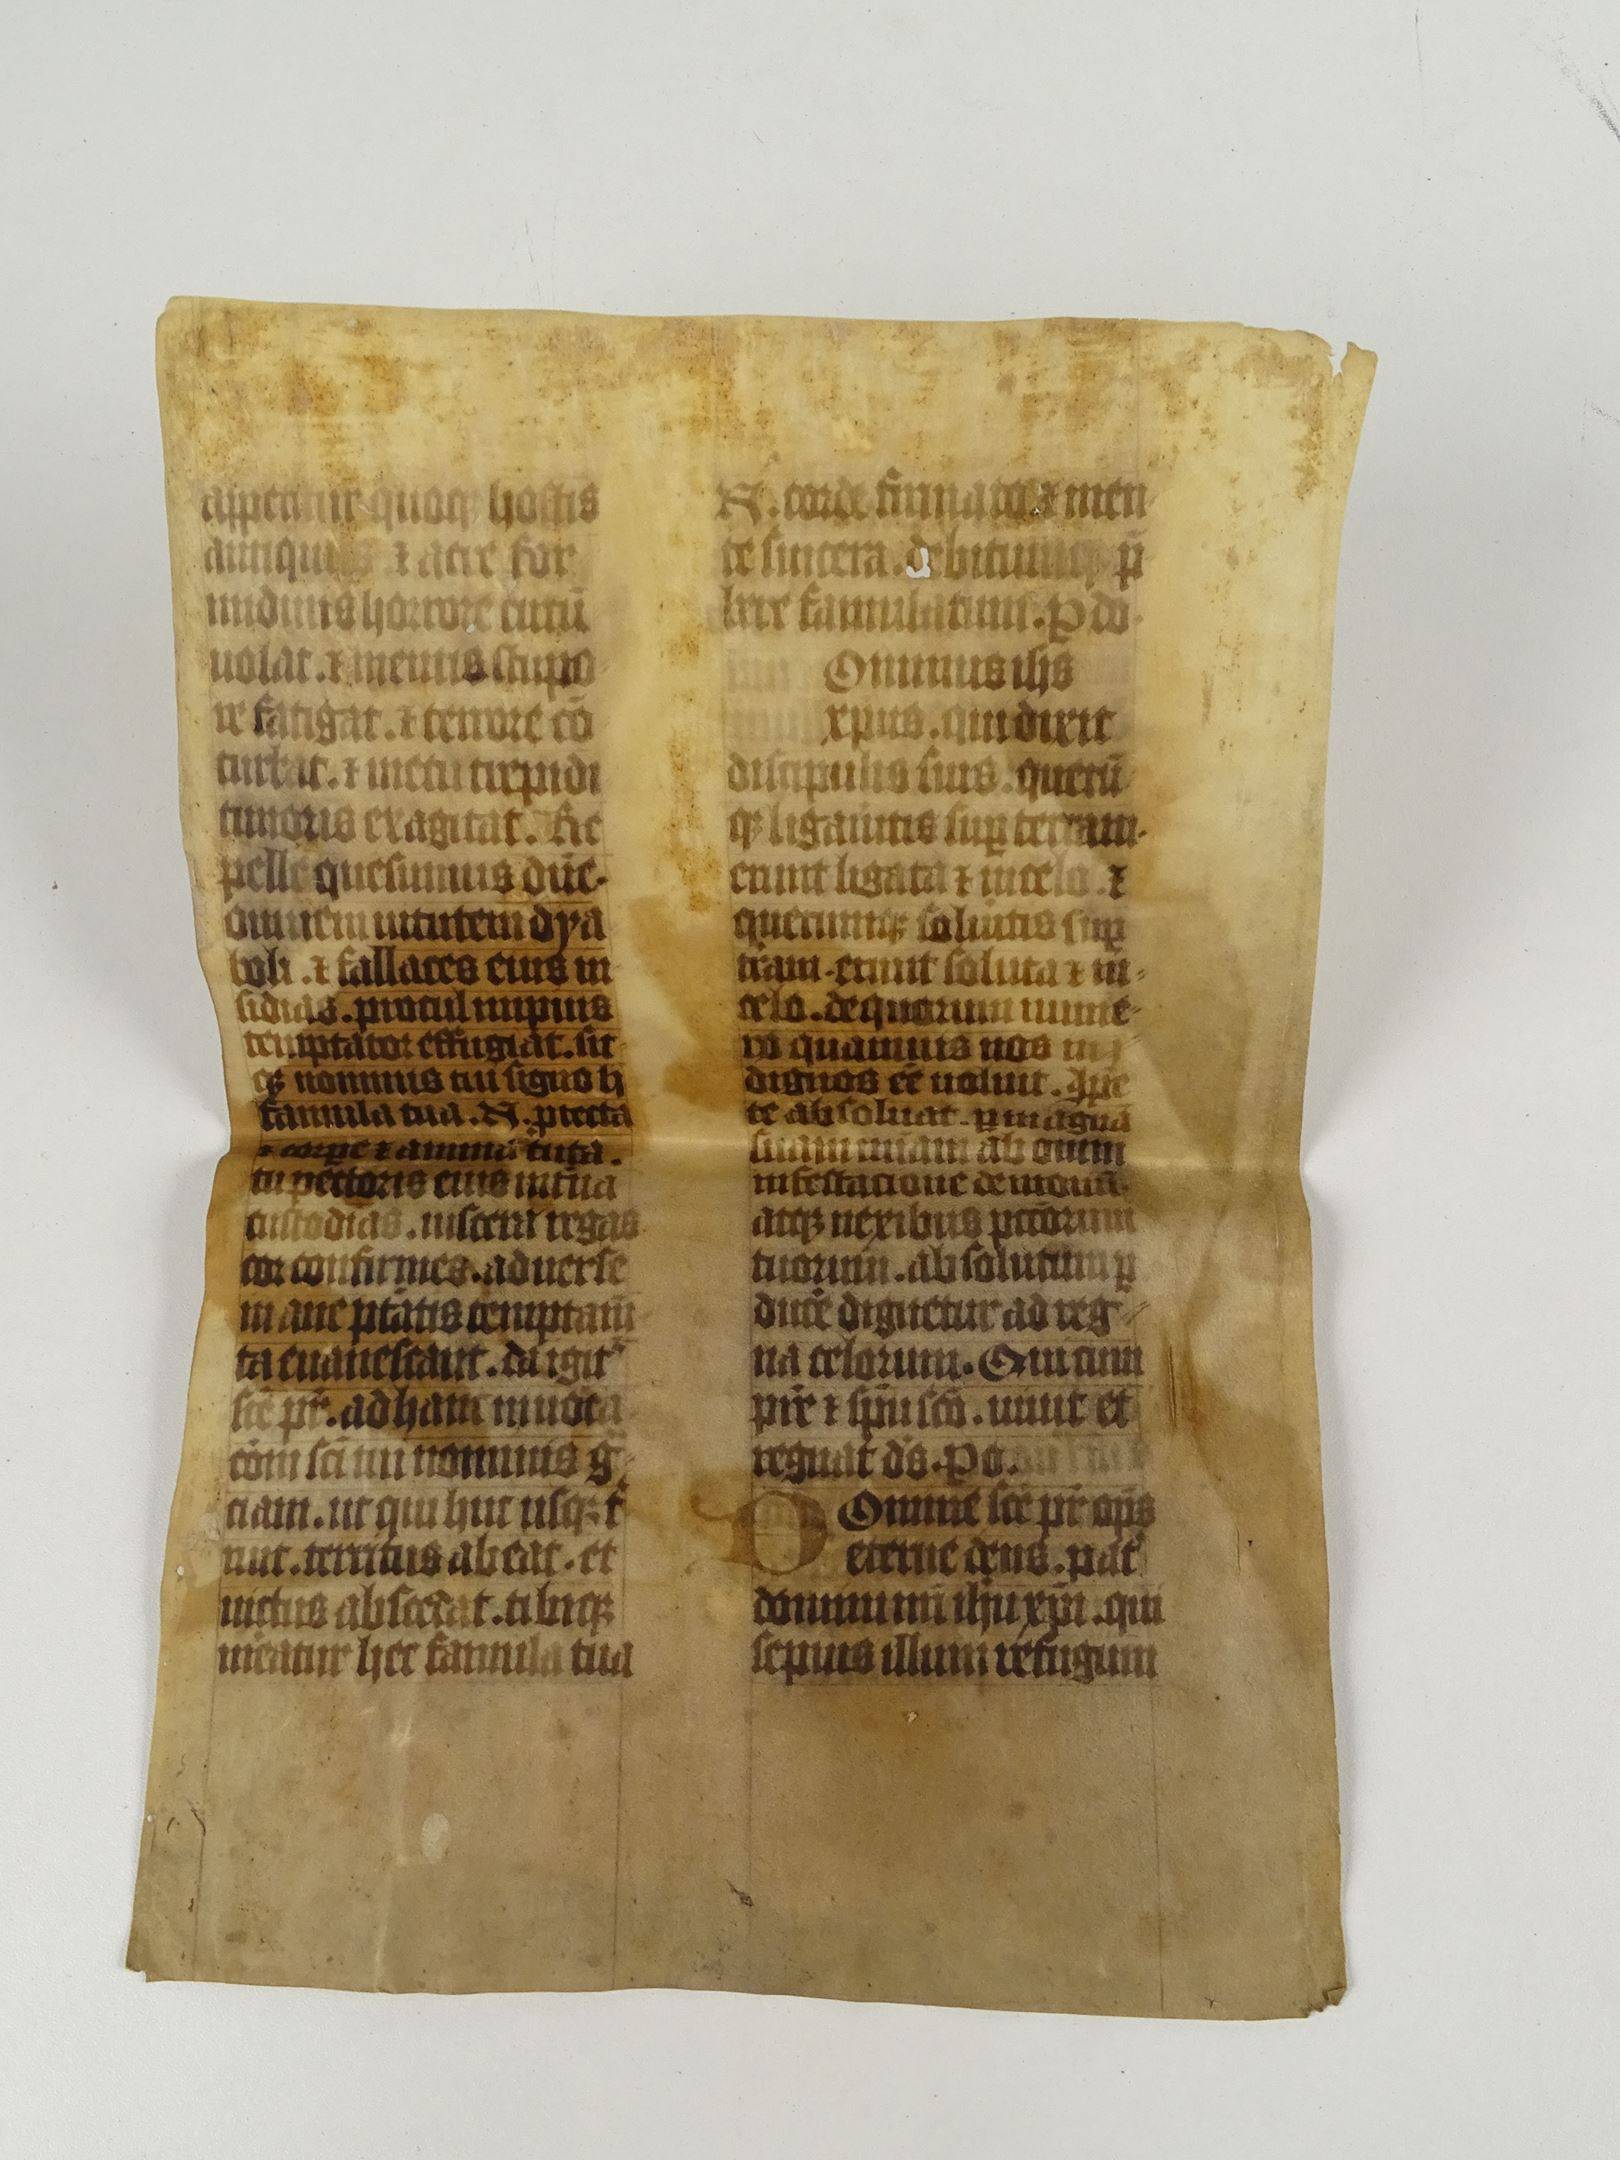 appetitur quoqꝫ hostis
antiquus ⁊ acre for
midinis horrore circū
uolat. ⁊ mentis stupo
re fatigat. ⁊ terrore cō
turbat. ⁊ metu trepidi
timoris exagitat. Re
pelle quesumus dn̄e.
omnem uirtutem dya
boli. ⁊ fallaces eius in
sidias. procul impius
temptator effugiat. sit
qꝫ nominis tui signo h̄
famula tua. N. protecta
⁊ corpe ⁊ anima tuta.
tu pectoris eius intͥna
custodias. viscera regas
cor confirmes. aduerse
in aīe ptātis temptam̄
ta euanescant. da igit᷑
scē pr̄. ad hanc inuoca
cōm sc̄i tui nominis gͣ
ciam. ut qui huc usqꝫ t͛
rit. territus abeat. et
uictus abscedat. tibiqꝫ
hec famula tua
N. corde firmato. ⁊ men
te sincera. debitum p̄
bere famulatum. P do
Ominus ihs
xpus. qui dixit
discipulis suis. quecū
qꝫ ligaueritis suꝑ terram.
erunt ligata ⁊ in celo. ⁊
quecumqꝫ solueritis suꝑ
terram. erunt soluta ⁊ in
celo. de quorum nume
ro quamuis nos in
dignos eē uoluit. ipe
te absoluat. ꝑ magnā
suam mīam ab omni
infestacione demonū.
atqꝫ nexibus pccōrum
tuorum. absolutum ꝑ
ducē dignetur ad reg
na celorum. Qui cum
pr̄e ⁊ spū sc̄o. uiuit et
regnat ds̄. Po.
D Omine scē pr̄ op̄s
eterne deus. pat͛
domini nr̄i ihu xp̄i. qui
illum refugum